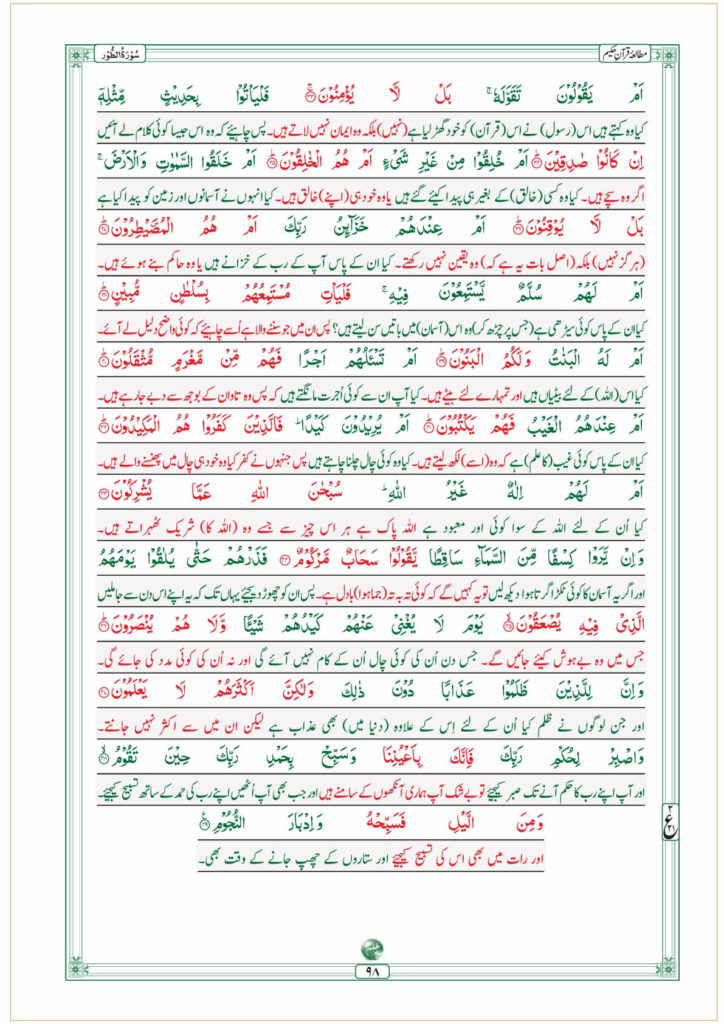 مطالعۂ قرآنِ حکیم
سُوْرَۃُ الطُّوْر
اَمْ يَقُوْلُوْنَ تَقَوَّلَهٗ ۚ بَلْ لَّا يُؤْمِنُوْنَ ﴿٣٣﴾ۚ فَلْيَاْتُوْا بِحَدِيْثٍ مِّثْلِهٖۤ
کیا وہ کہتے ہیں اس (رسول) نے اس (قرآن) کو خود گھڑ لیا ہے (نہیں) بلکہ وہ ایمان نہیں لاتے ہیں۔ پس چاہیئے کہ وہ اس جیسا کوئی کلام لے آئیں
اِنْ كَانُوْا صٰدِقِيْنَ ﴿٣٤﴾ؕ اَمْ خُلِقُوْا مِنْ غَيْرِ شَيْءٍ اَمْ هُمُ الْخٰلِقُوْنَ ﴿٣٥﴾ؕ اَمْ خَلَقُوا السَّمٰوٰتِ وَالْاَرْضَ ۚ
اگر وہ سچے ہیں۔ کیا وہ کسی (خالق) کے بغیر ہی پیدا کیئے گئے ہیں یا وہ خود ہی (اپنے) خالق ہیں۔ کیا انہوں نے آسمانوں اور زمین کو پیدا کیا ہے
بَلْ لَّا يُوْقِنُوْنَ ﴿٣٦﴾ؕ اَمْ عِنْدَهُمْ خَزَآىِٕنُ رَبِّكَ اَمْ هُمُ الْمُصَۜيْطِرُوْنَ ﴿٣٧﴾ؕ
(ہر گز نہیں) بلکہ (اصل بات یہ ہے کہ) وہ یقین نہیں رکھتے۔ کیا ان کے پاس آپ کے رب کے خزانے ہیں یا وہ حاکم بنے ہوئے ہیں۔
اَمْ لَهُمْ سُلَّمٌ يَّسْتَمِعُوْنَ فِيْهِ ۚ فَلْيَاْتِ مُسْتَمِعُهُمْ بِسُلْطٰنٍ مُّبِيْنٍ ﴿٣٨﴾ؕ
کیا ان کے پاس کوئی سیڑھی ہے (جس پر چڑھ کر) وہ اس (آسمان) میں باتیں سن لیتے ہیں؟ پس ان میں جو سننے والا ہے اُسے چاہیئے کہ کوئی واضح دلیل لے آئے۔
اَمْ لَهُ الْبَنٰتُ وَلَكُمُ الْبَنُوْنَ ﴿٣٩﴾ؕ اَمْ تَسْـَٔلُهُمْ اَجْرًا فَهُمْ مِّنْ مَّغْرَمٍ مُّثْقَلُوْنَ ﴿٤٠﴾ؕ
کیا اس (اللہ) کے لئے بیٹیاں ہیں اور تمہارے لئے بیٹے ہیں۔ کیا آپ ان سے کوئی اُجرت مانگتے ہیں کہ پس وہ تاوان کے بوجھ سے دبے جا رہے ہیں۔
اَمْ عِنْدَهُمُ الْغَيْبُ فَهُمْ يَكْتُبُوْنَ ﴿٤١﴾ؕ اَمْ يُرِيْدُوْنَ كَيْدًا ؕ فَالَّذِيْنَ كَفَرُوْا هُمُ الْمَكِيْدُوْنَ ﴿٤٢﴾ؕ
کیا ان کے پاس کوئی غیب (کا علم) ہے کہ وہ (اسے) لکھ لیتے ہیں۔ کیا وہ کوئی چال چلنا چاہتے ہیں پس جنہوں نے کفر کیا وہ خود ہی چال میں پھنسنے والے ہیں۔
اَمْ لَهُمْ اِلٰهٌ غَيْرُ اللّٰهِ ؕ سُبْحٰنَ اللّٰهِ عَمَّا يُشْرِكُوْنَ ﴿٤٣﴾
کیا اُن کے لئے اللہ کے سوا کوئی اور معبود ہے اللہ پاک ہے ہر اس چیز سے جسے وہ (اللہ کا) شریک ٹھہراتے ہیں۔
وَاِنْ يَّرَوْا كِسْفًا مِّنَ السَّمَآءِ سَاقِطًا يَّقُوْلُوْا سَحَابٌ مَّرْكُوْمٌ ﴿٤٤﴾ فَذَرْهُمْ حَتّٰى يُلٰقُوْا يَوْمَهُمُ
اور اگر یہ آسمان کا کوئی ٹکڑا گرتا ہوا دیکھ لیں تو یہ کہیں گے کہ کوئی تہ بہ تہ (جما ہوا) بادل ہے۔ پس ان کو چھوڑ دیجیئے یہاں تک کہ یہ اپنے اس دن سے جا ملیں
الَّذِيْ فِيْهِ يُصْعَقُوْنَ ﴿٤٥﴾ۙ يَوْمَ لَا يُغْنِيْ عَنْهُمْ كَيْدُهُمْ شَيْـًٔا وَّلَا هُمْ يُنْصَرُوْنَ ﴿٤٦﴾ؕ
جس میں وہ بے ہوش کیئے جائیں گے۔ جس دن اُن کی کوئی چال اُن کے کام نہیں آئے گی اور نہ اُن کی کوئی مدد کی جائے گی۔
وَاِنَّ لِلَّذِيْنَ ظَلَمُوْا عَذَابًا دُوْنَ ذٰلِكَ وَلٰكِنَّ اَكْثَرَهُمْ لَا يَعْلَمُوْنَ ﴿٤٧﴾
اور جن لوگوں نے ظلم کیا اُن کے لئے اِس کے علاوہ (دنیا میں) بھی عذاب ہے لیکن ان میں سے اکثر نہیں جانتے۔
وَاصْبِرْ لِحُكْمِ رَبِّكَ فَاِنَّكَ بِاَعْيُنِنَا وَسَبِّحْ بِحَمْدِ رَبِّكَ حِيْنَ تَقُوْمُ ﴿٤٨﴾ۙ
اور آپ اپنے رب کا حکم آنے تک صبر کیجیئے تو بے شک آپ ہماری آنکھوں کے سامنے ہیں اور جب بھی آپ اُٹھیں اپنے رب کی حمد کے ساتھ تسبیح کیجیئے۔
وَمِنَ الَّيْلِ فَسَبِّحْهُ وَاِدْبَارَ النُّجُوْمِ ﴿٤٩﴾
اور رات میں بھی اس کی تسبیح کیجیئے اور ستاروں کے چھپ جانے کے وقت بھی۔
۹۸